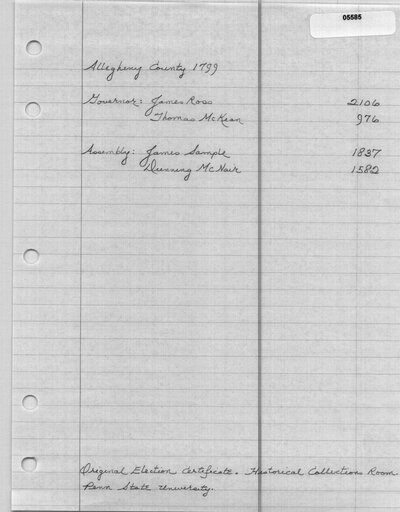 05585
Allegheny County 1799
Governor: James Ross 2106
Thomas McKean 976
Assembly: James Sample 1837
Dunning McNair 1582
Original Election Certificate. Historical Collections Room.
Penn State University.